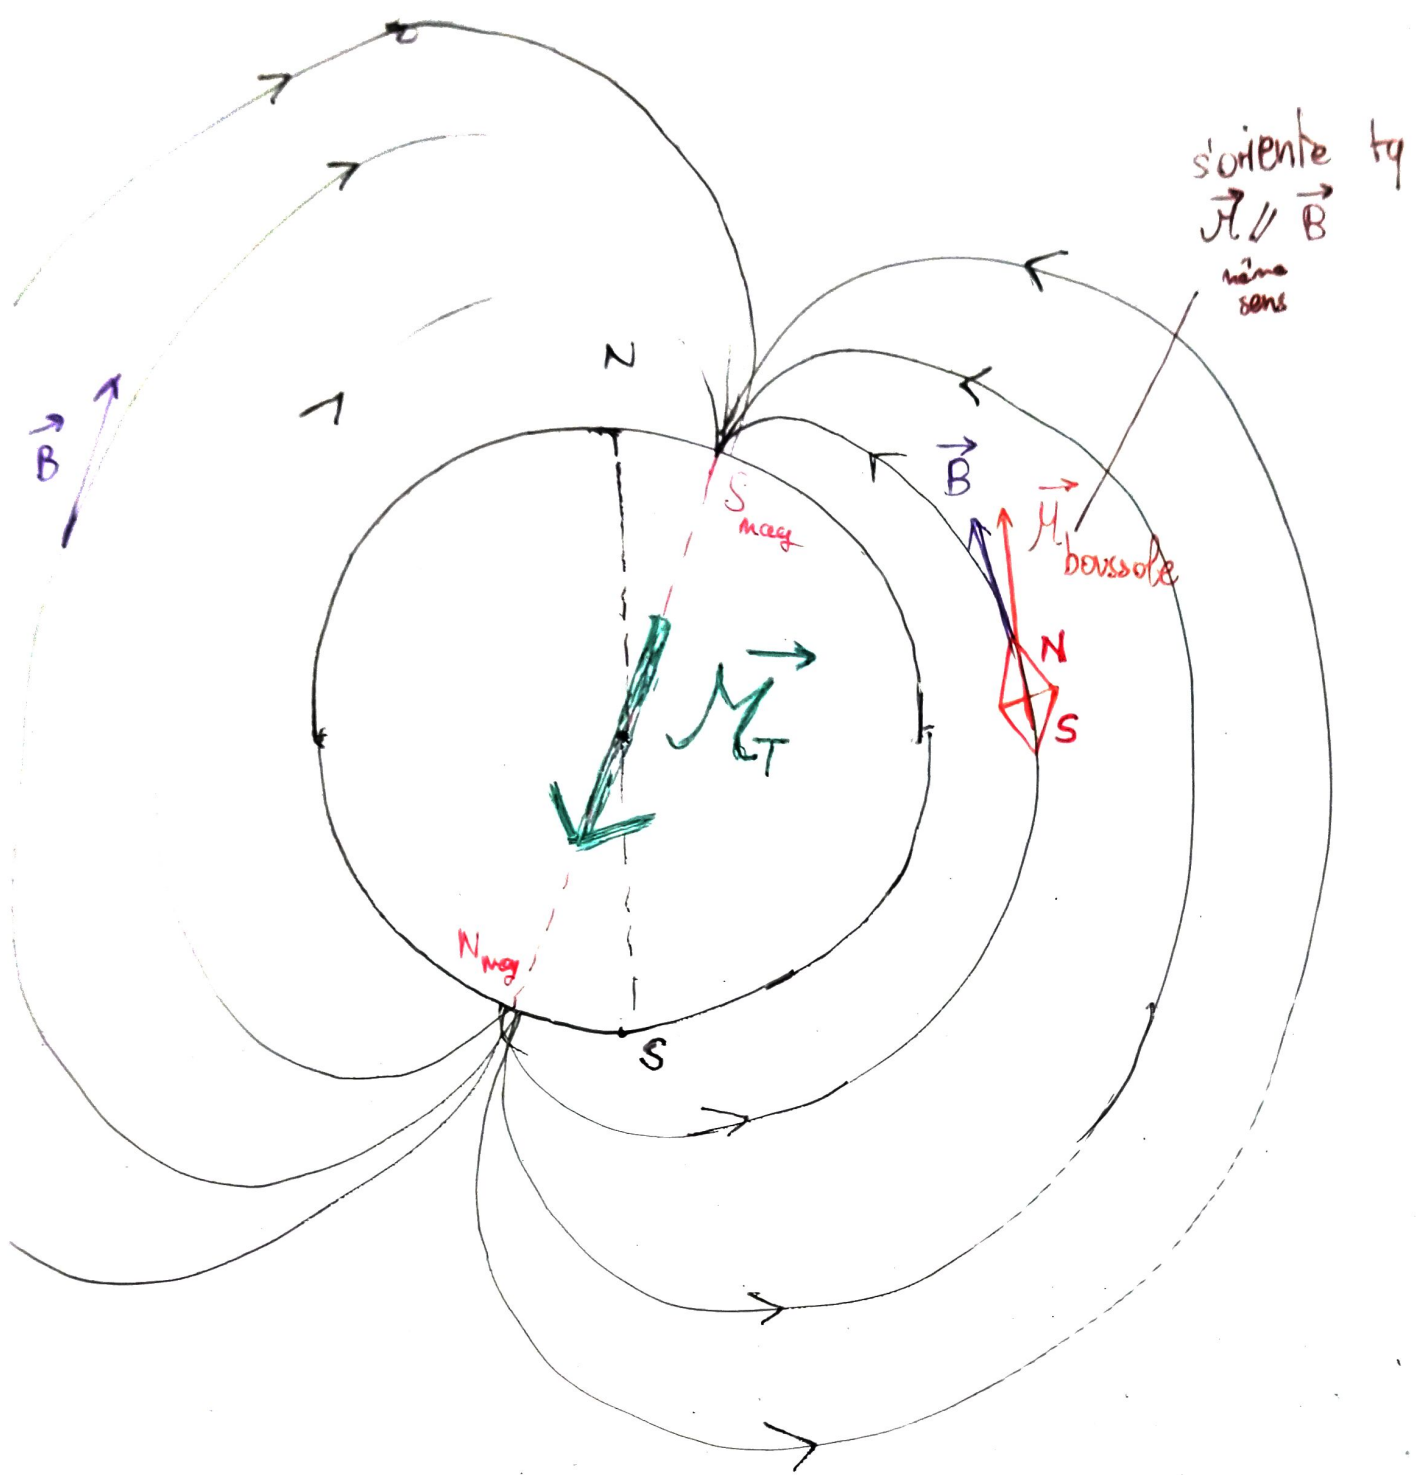 s'oriente tq
M⃗ // B⃗
même
sens
N
B⃗
B⃗
S mag
M⃗ boussole
N
S
M⃗_T
N mag
S